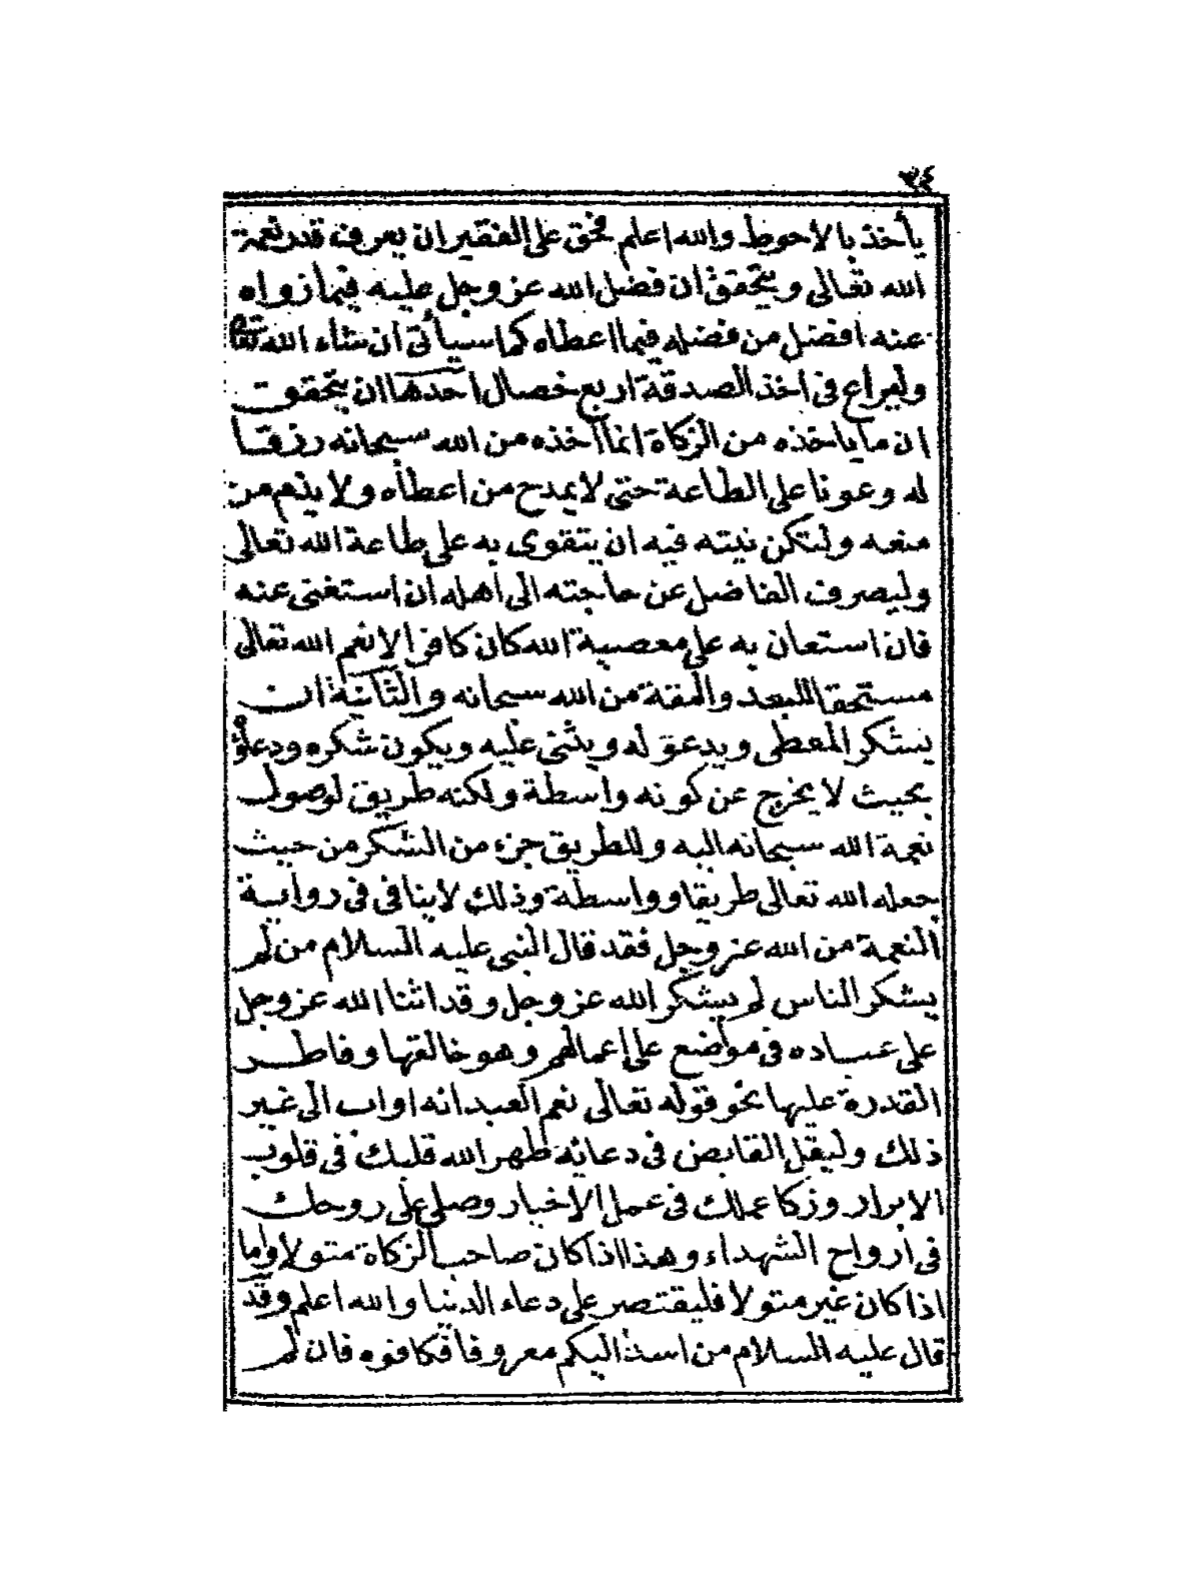 ٣٤
يأخذ بالاحوط والله اعلم فحق على الفقير ان يعرف قدر نعمة
الله تعالى ويتحقق ان فضل الله عز وجل عليه فيما زواه
عنه افضل من فضله فيما اعطاه كما سيأتى ان شاء الله تعا
وليراع فى اخذ الصدقة اربع خصال احدها ان يتحقق
ان ما ياخذه من الزكاة انما اخذه من الله سبحانه رزقا
له وعونا على الطاعة حتى لا يمدح من اعطاه ولا يذم من
منعه ولتكن نيته فيه ان يتقوى به على طاعة الله تعالى
وليصرف الفاضل عن حاجته الى اهله ان استغنى عنه
فان استعان به على معصية الله كان كافرا لانعم الله تعالى
مستحقا للبعد والمقة من الله سبحانه والثانية ان
يشكر المعطى ويدعو له ويثنى عليه ويكون شكره ودعاؤه
بحيث لا يخرج عن كونه واسطة ولكنه طريق لوصول
نعمة الله سبحانه اليه وللطريق جزء من الشكر من حيث
جعله الله تعالى طريقا وواسطة وذلك لا ينافى فى رواية
النعمة من الله عز وجل فقد قال النبى عليه السلام من لم
يشكر الناس لم يشكر الله عز وجل وقد اثنا الله عز وجل
على عباده فى مواضع على اعمالهم وهو خالقها وفاطر
القدرة عليها نحو قوله تعالى نعم العبد انه اواب الى غير
ذلك وليقل القابض فى دعائه طهر الله قلبك فى قلوب
الابرار وزكا عملك فى عمل الاخيار وصلى على روحك
فى ارواح الشهداء وهذا اذا كان صاحب الزكاة متولا واما
اذا كان غير متولا فليقتصر على دعاء الدنيا والله اعلم وقد
قال عليه السلام من اسدا اليكم معروفا فكافوه فان لم